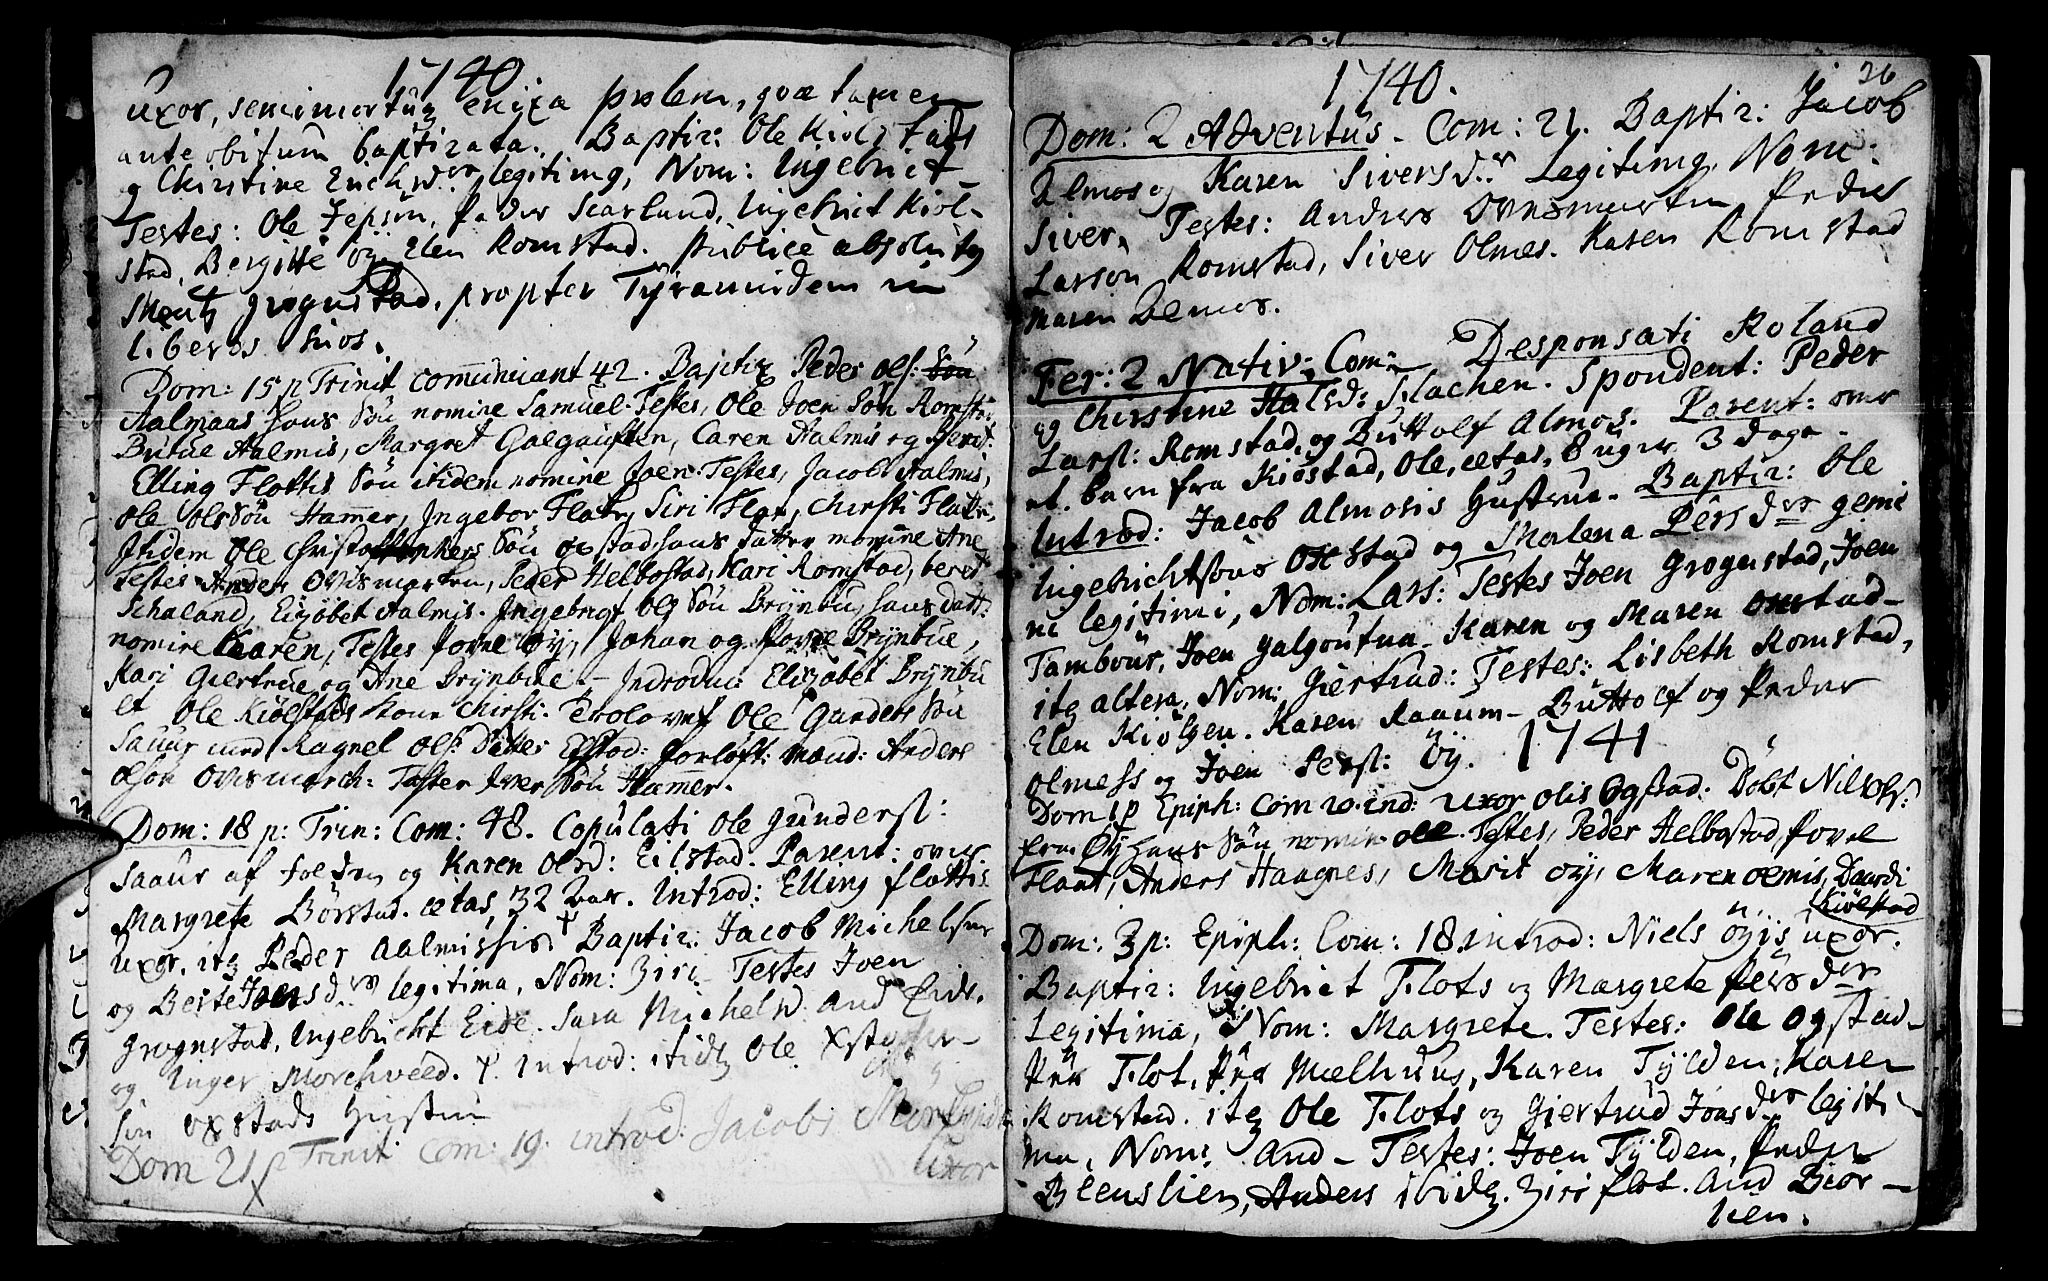 1740
Uxor, semimortuz enixa prolem, qvæ tamen
ante obitum baptizata. Baptiz: Ole Kiølstads
og Chirstine Erichsdr legitimg, Nom: Ingebrict
Testes: Ole Jepsøn, Peder Scarlund, Ingebrict Kiøl-
stad, Bergitte Øy. Elen Romstad. Publicè absolutg
Mentz Grognstad, propter Tyrannidem in
liberos suos.
Dom: 15 p Trinit comunicant 42. Baptiz Peder Ols: Søn
Aalmaas hans Søn nomine Samuel. Testes, Ole Joen Søn Romstad
Butue Aalmis, Margret Galgauften, Caren Aalmis og Berit
Elling Flottis Søn itidem nomine Joen. Testes, Jacob Aalmis,
Ole Ols Søn Hammer, Ingebor Flat, Siri Flat, Chirsti Flatt
Itidem Ole Christ Søn Oxstad hans datter nomine Ane
Testes Anders Ovismarken, Peder Helbostad, Kari Romstad, beret
Schaland, Elisobet Aalmis. Ingebrigt Ols Søn Brynbu, hans datt:
nomine Karen, Testes Povne Øy, Johan og Povne Brynbue,
Kari Giertrue og Ane Brynbue - Introduc: Elizabet Brynbu
et Ole Kiølstads Kone Chirsti: Trolovet Ole Gunders Søn
Saur med Ragnel Ols: Dtter Eilstad: forløft: mænd: Anders
Olsøn Ovismarch: Tøster Iver Søn Hammer.
Dom: 18 p: Trin: Com: 48. Copulati Ole Gunders:
Saaur af Folden og Karen Olsd: Eilstad. Parent: over
Margrete Børstad. ætas, 32 Aar. Introd: Elling Flottis
Uxor. itg Peder Aalmissis. + Baptiz: Jacob Michelsøns
og Berte Joensdr legitima, Nom: Ziri Testes Joen
Grognstad, Ingebricht Eide. Sara Michelsd. And Eide.
og Inger Morchveed. +. Introd: itidz Ole
sin Oxstads Hustru
Dom 21 p Trinit Com: 19. introd: Jacobs
Uxor
26
1740.
Dom: 2 Adventus - Com: 21. Baptiz: Jacob
Olmos og Karen Siversdr Legitimg, Nom:
Siver, Testes: Anders Ovesmarken Peder
Larsøn Romstad, Siver Olmes. Karen Romstad
Maren Olmos.
Fer: 2 Nativ: Com: Desponsati Roland
og Chirstine Halsd: Flachen. Spondent: Peder
Larss: Romstad, og Buttolf Almos. Parent: over
et barn fra Kiøstad, Ole, ætas, 8 uger 3 dage.
Introd: Jacob Almosis Hustrue. Baptiz: Ole
Ingebrichtsøns Oxstad og Malena Persdr gemi
ni legitimi, Nom: Lars: Testes Joen Grognstad, Joen
Tambour, Joen Galgoutua. Karen og Maren Oxstad-
itg altera, Nom: Giertrud: Testes: Lisbeth Romstad,
Elen Kiølsen. Karen Raaum- Buttolf og Peder
Olmess og Joen Perss: Øy. 1741
Dom 1 p Epiph: Com 20. ind: Uxor Olis Ogstad. Døbt Nils Ols:
Øy hans Søn nomin Ole. Testes, Peder Helbostad, Povel
Flaat, Anders Haagnes, Marit Øy, Maren Olmis, Daardi
Kiølstad
Dom: 3 p: Epiph: Com: 18 introd: Niels Øyis uxor.
Baptiz: Ingebrict Flots og Margrete Persdr
Legitima, Nom: Margrete. Testes: Ole Ogstad-
Per Flot, Per Mælhuus, Karen Tylden, Karen
Romstad. itg Ole Flots og Giertrud Jonsdr legiti-
ma, Nom: And- Testes: Joen Tylden, Peder
Blenslien, Anders ibidz. Ziri Flot. And Biør-
lien.